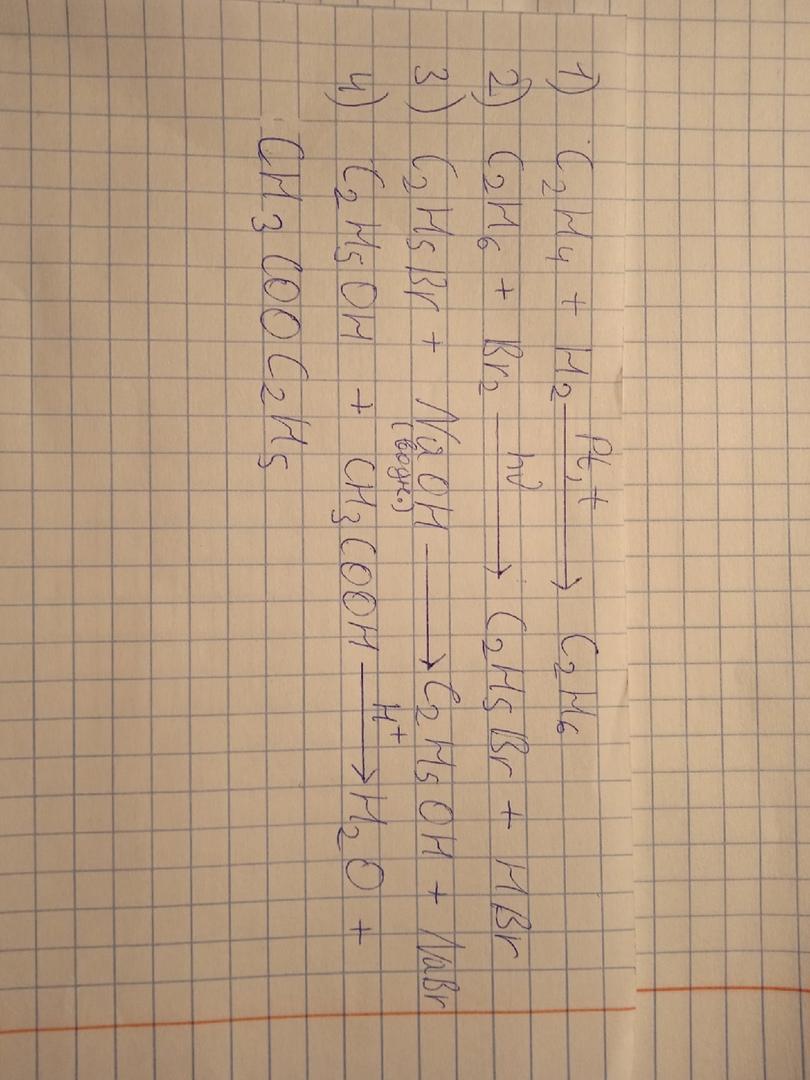 1) C2H4 + H2 —Pt, t→ C2H6
2) C2H6 + Br2 —hν→ C2H5Br + HBr
3) C2H5Br + NaOH (водн.) ⟶ C2H5OH + NaBr
4) C2H5OH + CH3COOH —H⁺→ H2O +
CH3COOC2H5